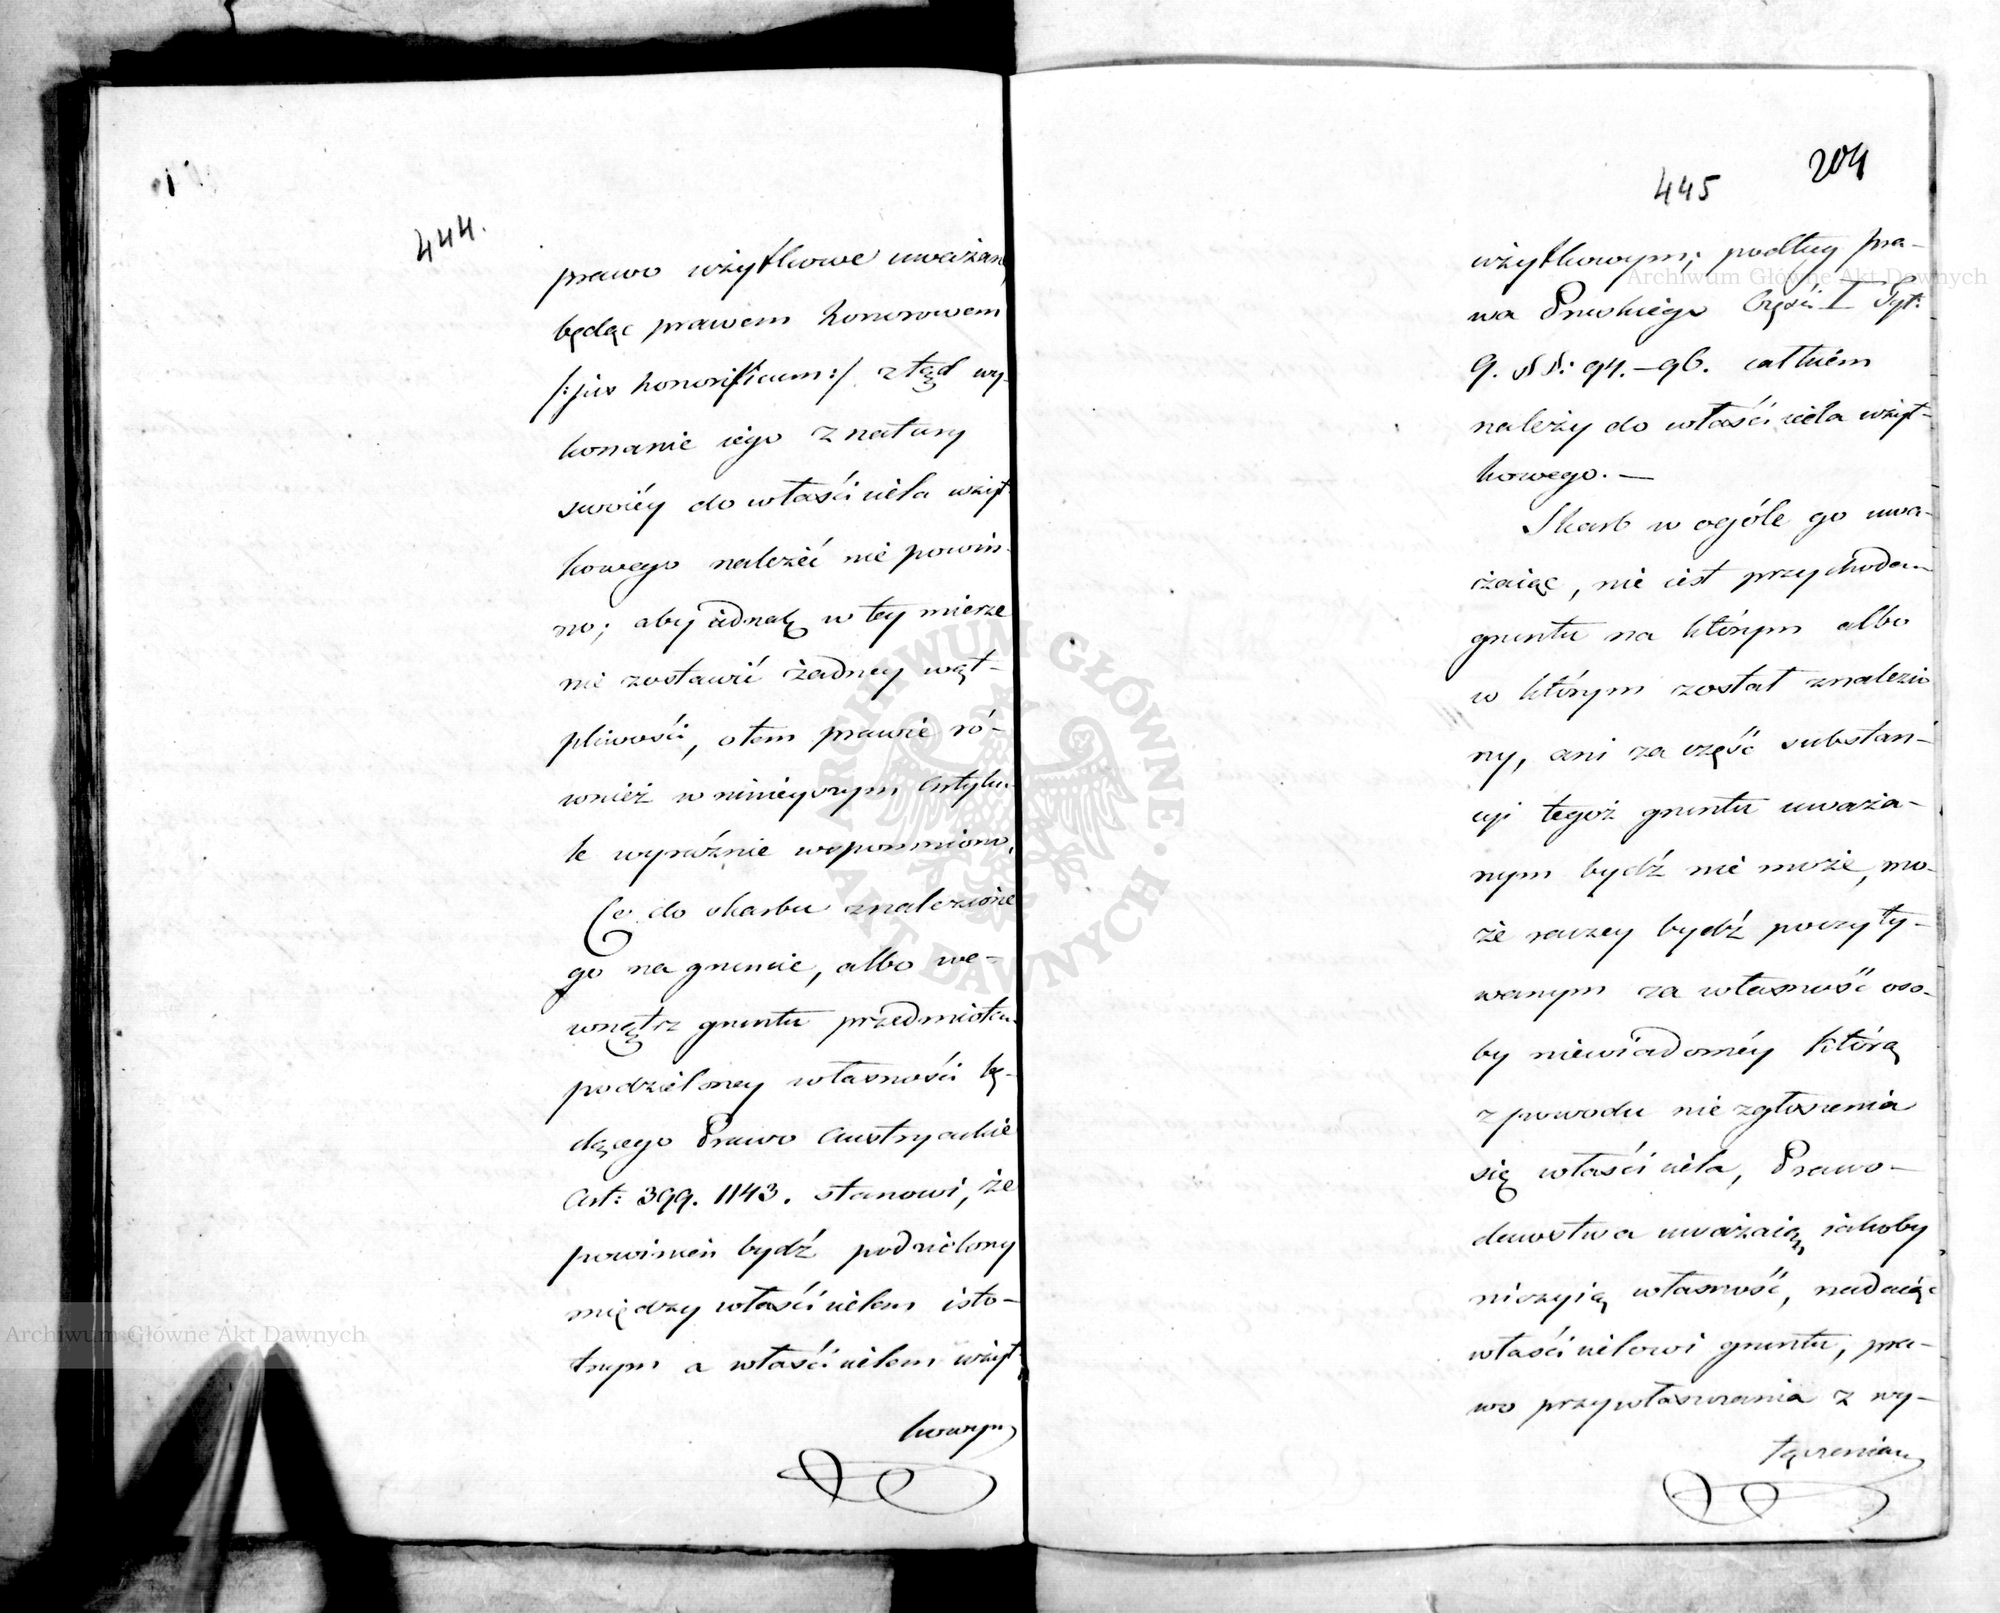 444.
prawo użytkowe uważane,
będąc prawem honorowem
/:jus honorificum:/ ztąd wy-
konanie iego z natury
swoiéy do właściciela użyt-
kowego należeć nie powin-
no; aby iednak w tey mierze
nie zostawić żadney wąt-
pliwości, o tem prawie ró-
wnież w ninieyszym Artyku-
le wyraźnie wspomniono.
Co do skarbu znalezione
go na gruncie, albo we-
wnątrz gruntu przedmiotem
podzieloney własności bę-
dącego Prawo Austryackie
Art: 399. 1143. stanowi, że
powinien bydź podzielony
między właścicielem isto-
tnym a właścicielem użyt
kowym
445
204
użytkowym; podług pra-
wa Pruskiego Części I Tyt:
9. §§: 94.-96. całkiem
należy do właściciela użyt-
kowego. —
Skarb w ogóle go uwa-
żaiąc, nie iest przychodem
gruntu na którym albo
w którym został znalezio
ny, ani za część substan-
cyi tegoż gruntu uważa-
nym bydź nie może, mo-
że raczey bydź poczyty-
wanym za własność oso-
by niewiadoméy którą
z powodu nie zgłoszenia
się właściciela, Prawo-
dawstwa uważaią, iakoby
niczyią własność, nadaiąc
właścicielowi gruntu, pra-
wo przywłaszczenia z wy-
łączeniem
Archiwum Główne Akt Dawnych
Archiwum Główne Akt Dawnych
ARCHIWUM GŁÓWNE AKT DAWNYCH